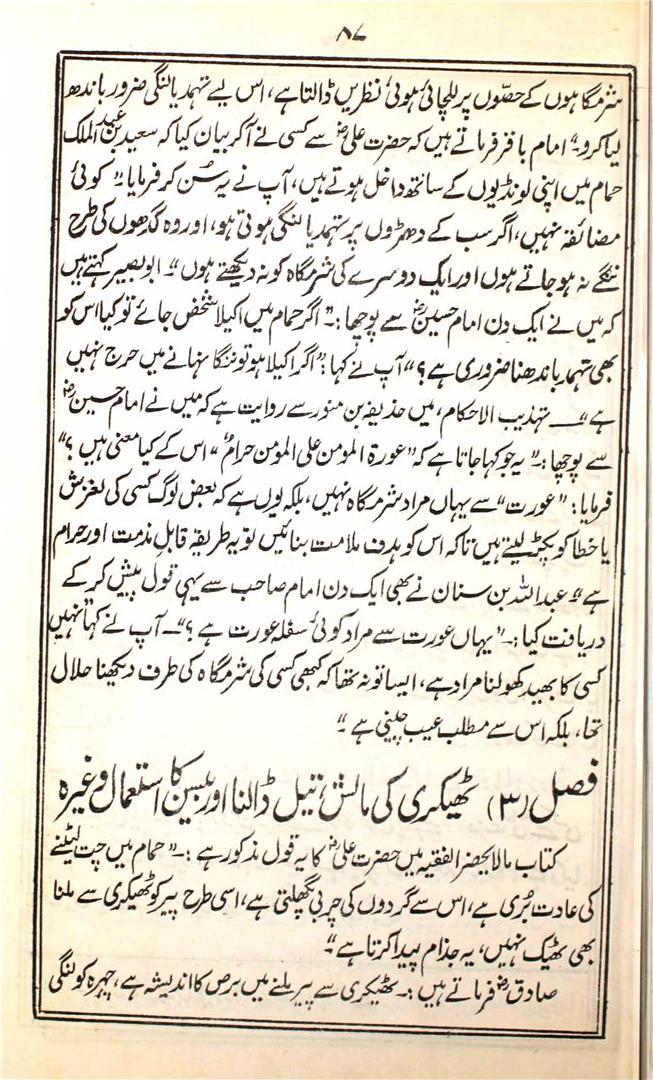 ۸۷
شرمگاہوں کے حصّوں پر للچائی ہوئی نظریں ڈالتا ہے، اس لیے تہمد یا لنگی ضرور باندھ
لیا کرو۔" امام باقر فرماتے ہیں کہ حضرت علیؓ سے کسی نے آکر بیان کیا کہ سعید بن عبد الملک
حمام میں اپنی لونڈیوں کے ساتھ داخل ہوتے ہیں، آپ نے یہ سُن کر فرمایا:۔" کوئی
مضائقہ نہیں، اگر سب کے دھڑوں پر تہمد یا لنگی ہوتی ہو، اور وہ گدھوں کی طرح
ننگے نہ ہو جاتے ہوں اور ایک دوسرے کی شرمگاہ کو نہ دیکھتے ہوں"۔ ابو بصیر کہتے ہیں
کہ میں نے ایک دن امام حسینؓ سے پوچھا:۔" اگر حمام میں اکیلا شخص جائے تو کیا اس کو
بھی تہمد باندھنا ضروری ہے؟" آپ نے کہا:" اگر اکیلا ہو تو ننگا نہانے میں حرج نہیں
ہے"۔ــــ تہذیب الاحکام، میں حذیفہ بن منصور سے روایت ہے کہ میں نے امام حسینؓ
سے پوچھا:۔" یہ جو کہا جاتا ہے کہ" عورۃ المومن علی المومن حرامٌ" اس کے کیا معنی ہیں؟"
فرمایا: "عورت" سے یہاں مراد شرمگاہ نہیں، بلکہ یوں ہے کہ بعض لوگ کسی کی لغزش
یا خطا کو پکڑ لیتے ہیں تاکہ اس کو ہدف ملامت بنائیں تو یہ طریقہ قابلِ مذمت اور حرام
ہے"۔ عبد اللہ بن سنان نے بھی ایک دن امام صاحب سے یہی قول پیش کر کے
دریافت کیا:۔" یہاں عورت سے مراد کوئی سفلہ عورت ہے؟"۔ آپ نے کہا نہیں
کسی کا بھید کھولنا مراد ہے، ایسا تو نہ تھا کہ کبھی کسی کی شرمگاہ کی طرف دیکھنا حلال
تھا، بلکہ اس سے مطلب عیب چینی ہے"
فصل (۳) ٹھیکری کی مالش، تیل ڈالنا اور بیسن کا استعمال وغیرہ
کتاب مالایحضر الفقیہ میں حضرت علیؓ کا یہ قول مذکور ہے:۔" حمام میں چت لیٹنے
کی عادت بُری ہے، اس سے گردوں کی چربی گھلتی ہے، اسی طرح پیر کو ٹھیکری سے ملنا
بھی ٹھیک نہیں، یہ جذام پیدا کرتا ہے"۔
صادقؓ فرماتے ہیں:۔ ٹھیکری سے پیر ملنے میں برص کا اندیشہ ہے، چہرہ کو لنگی